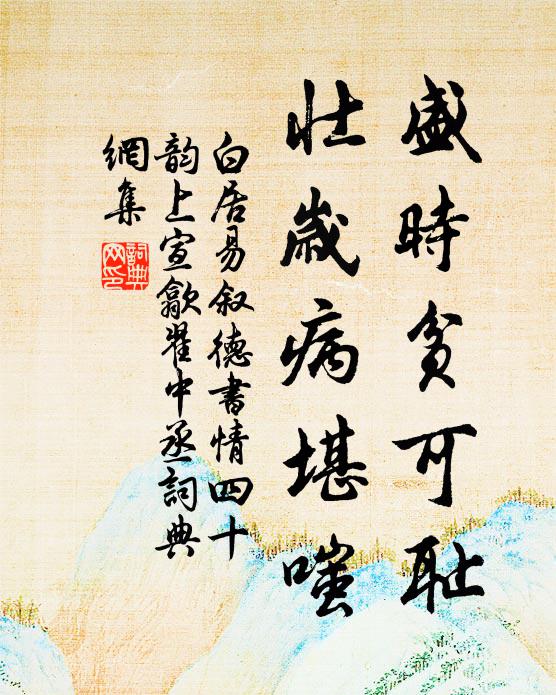 盛時貧可耻
壮歲病堪嗤
白居易叙德書情四十
韵上宣歙翟中丞詞典
網集
詞典
网印